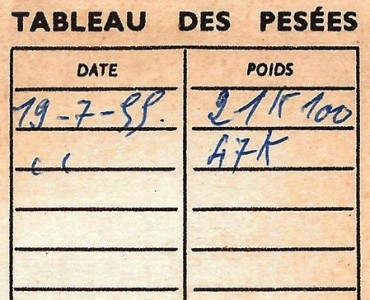 TABLEAU DES PESÉES
DATE POIDS
19-7-55. 21K100
" 47K